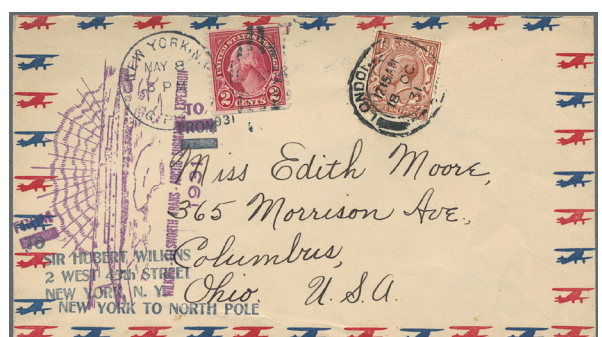 NEW YORK, N.Y.
MAY 8
8 P
1931
UNITED STATES POSTAGE
2 CENTS 2
LONDON
12.15 AM
8 OC
31
TO
FROM
WILKINS - ELLSWORTH TRANS - ARCTIC SUBMARINE EXPEDITION
1931
FROM
TO
Miss Edith Moore,
365 Morrison Ave.,
Columbus,
Ohio. U.S.A.
SIR HUBERT WILKINS
2 WEST 45th STREET
NEW YORK N. Y.
NEW YORK TO NORTH POLE